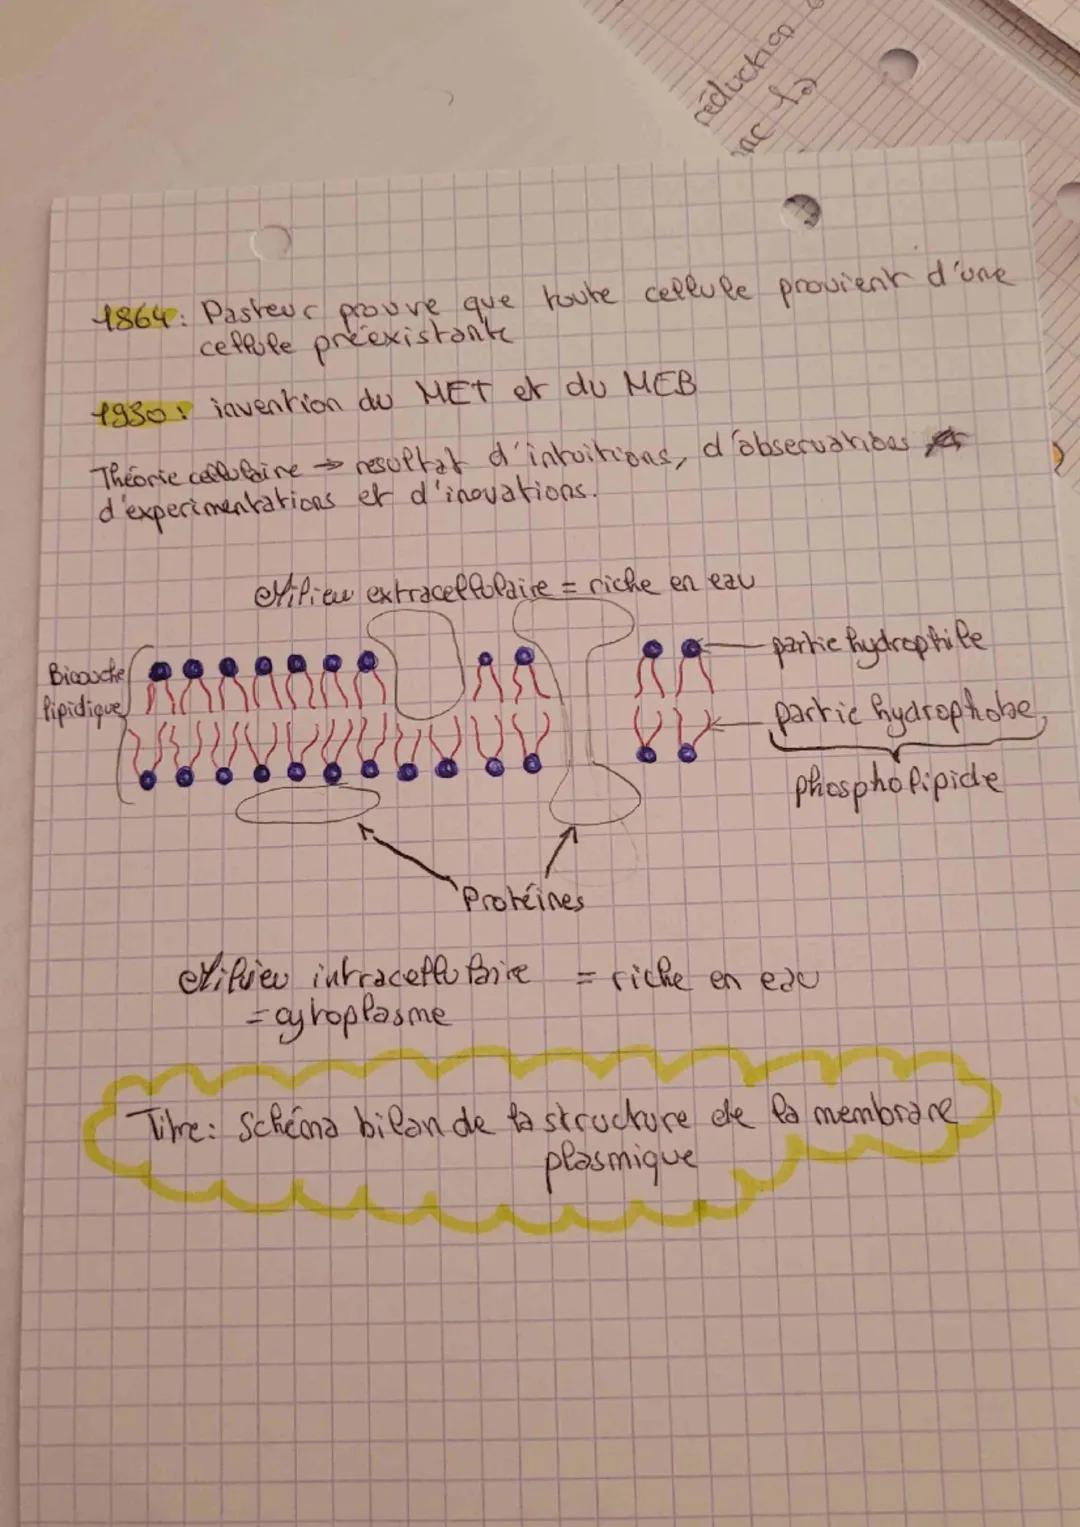 réduction
1864: Pasteur prouve que toute cellule provient d'une
cellule préexistante
1930: invention du MET et du MEB
Théorie cellulaire → resultat d'intuitions, d'observations
d'experimentations et d'inovations.
Milieu extracellulaire = riche en eau
Bicouche
lipidique
partie hydrophile
partie hydrophobe
phospholipide
Protéines
Milieu intracellulaire = riche en eau
= cytoplasme
Titre: Schéma bilan de la structure de la membrane
plasmique